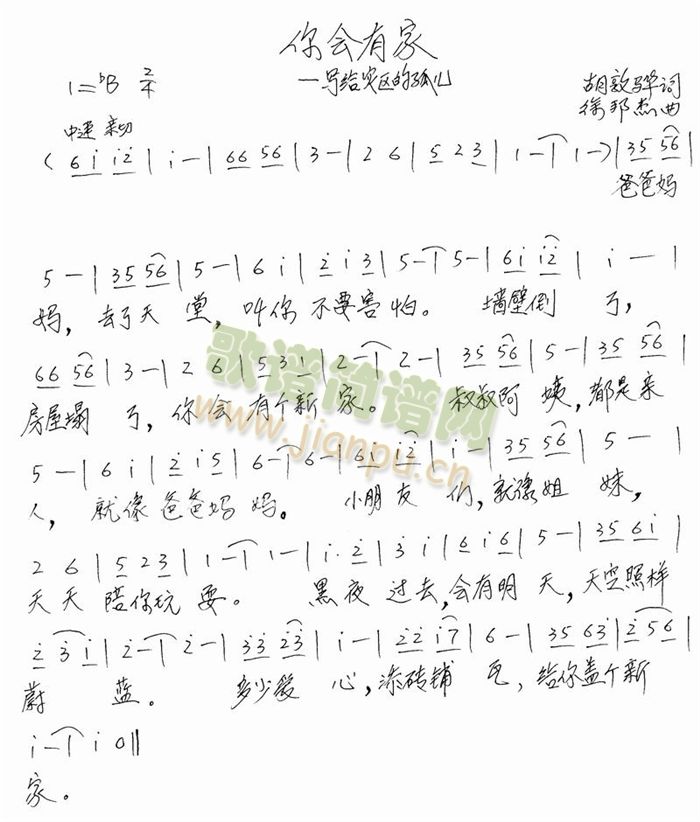 你会有家
—写给灾区的孤儿
1=ᵇB 2/4
胡敦骅词
徐邦杰曲
中速 亲切
( 6 i i 2 | i — | 6 6 5 6 | 3 — | 2 6 | 5 2 3 | 1 — | 1 — ) | 3 5 5 6 |
爸爸妈
5 — | 3 5 5 6 | 5 — | 6 i | 2 i 3 | 5 — | 5 — | 6 i i 2 | i — |
妈，去了天堂，叫你不要害怕。墙壁倒了，
6 6 5 6 | 3 — | 2 6 | 5 3 1 | 2 — | 2 — | 3 5 5 6 | 5 — | 3 5 5 6 |
房屋塌了，你会有个新家。叔叔阿姨，都是亲
5 — | 6 i | 2 i 5 | 6 — | 6 — | 6 i i 2 | i — | 3 5 5 6 | 5 — |
人，就像爸爸妈妈。小朋友们，就像姐妹，
2 6 | 5 2 3 | 1 — | 1 — | i. 2 | 3 i | 6 i 6 | 5 — | 3 5 6 i |
天天陪你玩耍。黑夜过去，会有明天，天空照样
2 3 i | 2 — | 2 — | 3 3 2 3 | i — | 2 2 i 7 | 6 — | 3 5 6 3 | 2 5 6 |
蔚蓝。多少爱心，添砖铺瓦，给你盖个新
i — | i 0 ||
家。
歌谱简谱网
www.jianpu.cn